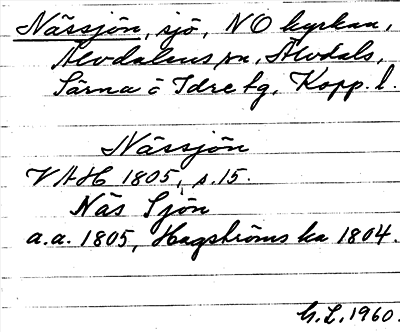 Nässjön, sjö, NO kyrkan,
Älvdalens sn, Älvdals,
Särna o Idre tg, Kopp. l.
Nässjön
VAH 1805, s. 15.
Näs Sjön
a.a. 1805, Hagströms ka 1804.
G.L. 1960.